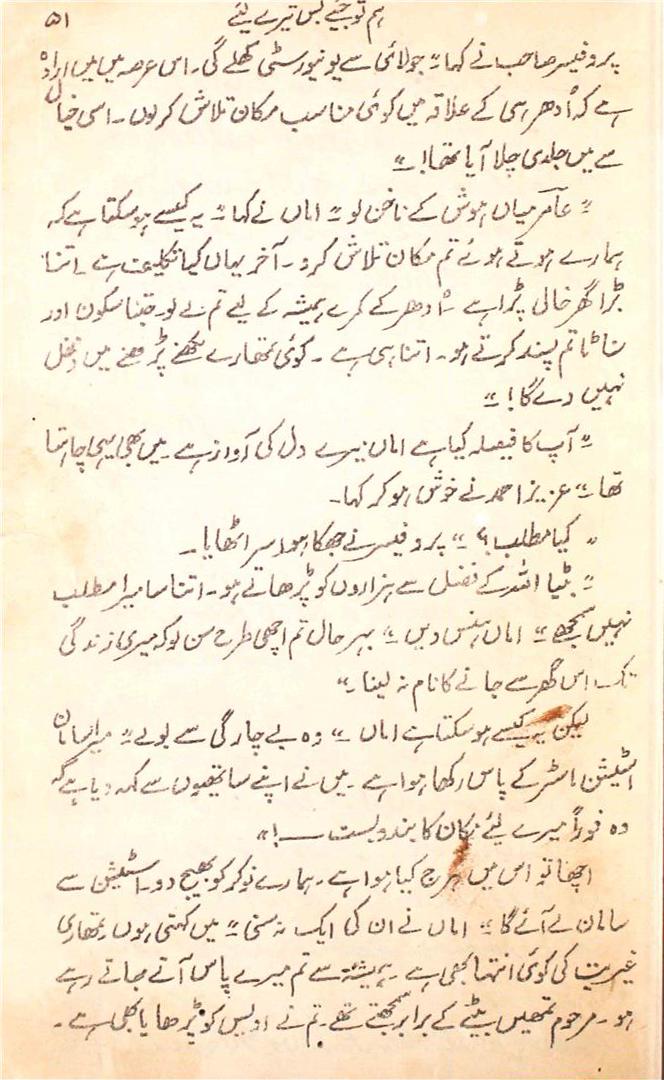 ہم تو جیے بس تیرے لیے ۵۱
پروفیسر صاحب نے کہا۔" جولائی سے یونیورسٹی کھلے گی۔ اس عرصہ میں میں ارادہ
ہے کہ اُدھر ہی کے علاقہ میں کوئی مناسب مکان تلاش کر لوں۔ اسی خیال
سے میں جلدی چلا آیا تھا!۔"
"عامر میاں ہوش کے ناخن لو۔" اماں نے کہا۔" یہ کیسے ہو سکتا ہے کہ
ہمارے ہوتے ہوئے تم مکان تلاش کرو۔ آخر یہاں کیا تکلیف ہے۔ اتنا
بڑا گھر خالی پڑا ہے۔ اُدھر کے کمرے ہمیشہ کے لیے تم لے لو۔ جتنا سکون اور
سناٹا تم پسند کرتے ہو۔ اتنا ہی ہے۔ کوئی تمھارے لکھنے پڑھنے میں دخل
نہیں دے گا!۔"
"آپ کا فیصلہ کیا ہے اماں میرے دل کی آواز ہے۔ میں بھی یہی چاہتا
تھا۔" عزیز احمد نے خوش ہو کر کہا۔
"کیا مطلب؟۔" پروفیسر نے جھکا ہوا سر اٹھایا۔
"بٹیا اللہ کے فضل سے ہزاروں کو پڑھاتے ہو۔ اتنا سا میرا مطلب
نہیں سمجھے۔" اماں ہنس دیں۔" بہر حال تم اچھی طرح سن لو کہ میری زندگی
تک اس گھر سے جانے کا نام نہ لینا۔"
لیکن یہ کیسے ہو سکتا ہے اماں۔" وہ بے چارگی سے بولے۔" میرا سامان
اسٹیشن ماسٹر کے پاس رکھا ہوا ہے۔ میں نے اپنے ساتھیوں سے کہہ دیا ہے کہ
وہ فوراً میرے لئے مکان کا بندوبست ــــ!"
اچھا تو اس میں ہرج کیا ہوا ہے۔ ہمارے نوکر کو بھیج دو۔ اسٹیشن سے
سامان لے آئے گا۔" اماں نے ان کی ایک نہ سنی۔" میں کہتی ہوں تمھاری
غیریت کی کوئی انتہا بھی ہے۔ ہمیشہ سے تم میرے پاس آتے جاتے رہے
ہو۔ مرحوم تمھیں بیٹے کے برابر سمجھتے تھے۔ تم نے اویس کو پڑھایا بھی ہے۔